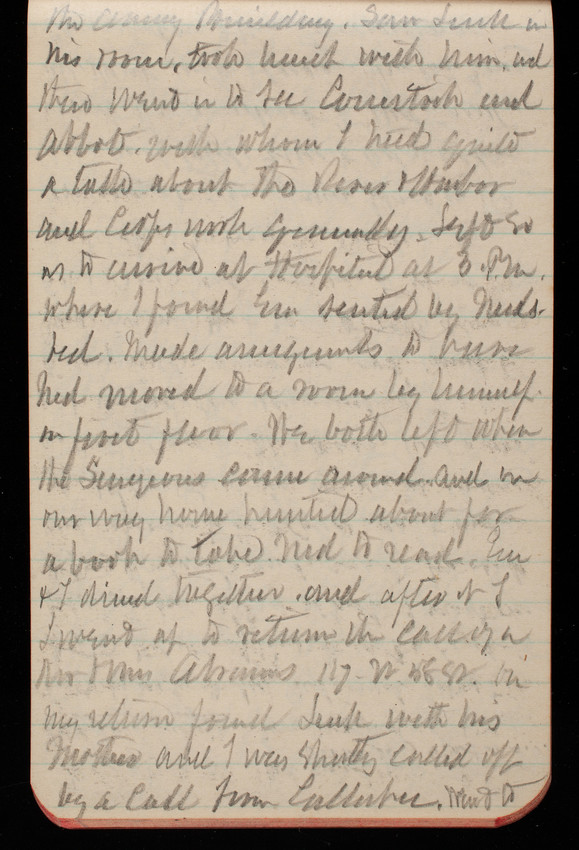 the Army Building. Saw Lusk in
his room, took lunch with him, and
then went in to see Comstock and
Abbot. with whom I had quite
a talk about the River & Harbor
and Corps work generally. Left so
as to arrive at Hospital at 3 P.M.
where I found Em seated by Neds
bed. Made arrangements to have
Ned moved to a room by himself
on first floor. We both left when
the Surgeons came around. and on
our way home hunted about for
a book to take Ned to read. Em
& I dined together. and after it I
I went up to return the call of a
Mr & Mrs 117 W 58 St. on
my return found Lusk with his
Mother and I was shortly called off
by a call from . Went to